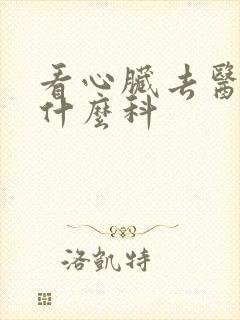 看心臟去醫
什麼科
洛凱特